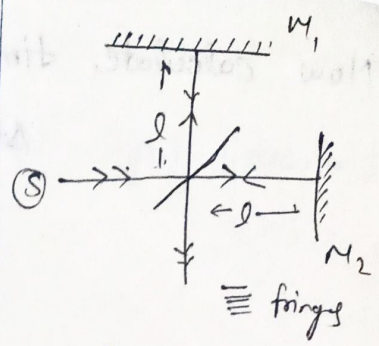 M₁
l
S
l
M₂
fringes